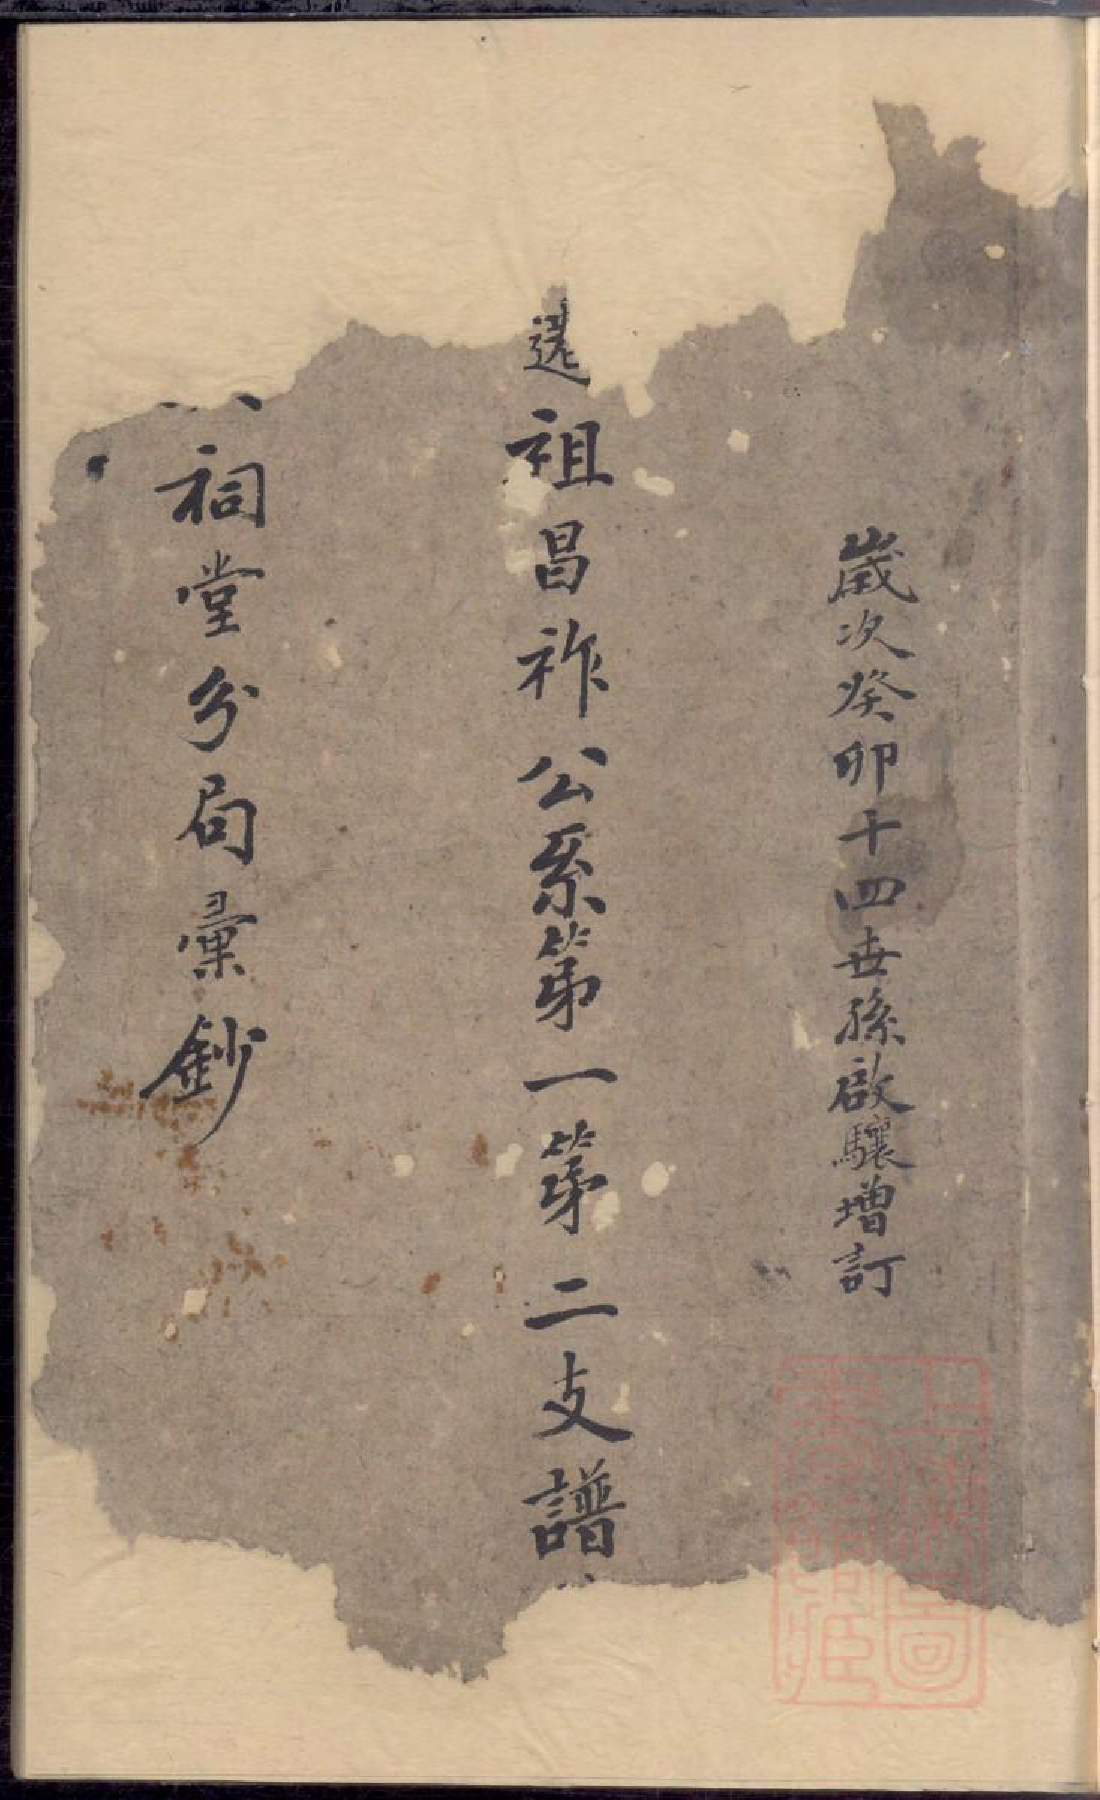 歲次癸卯十四世孫啟驤增訂
遷祖昌祚公系第一第二支譜
祠堂分局彙鈔
上海圖書館藏